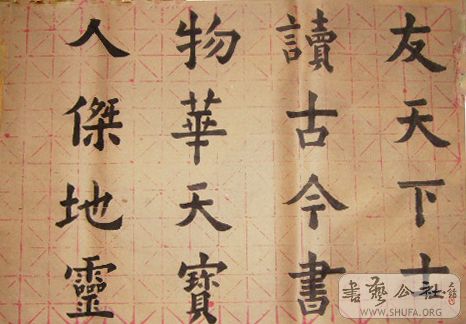 友天下士
讀古今書
物華天寶
人傑地靈
書藝公社
WWW.SHUFA.ORG